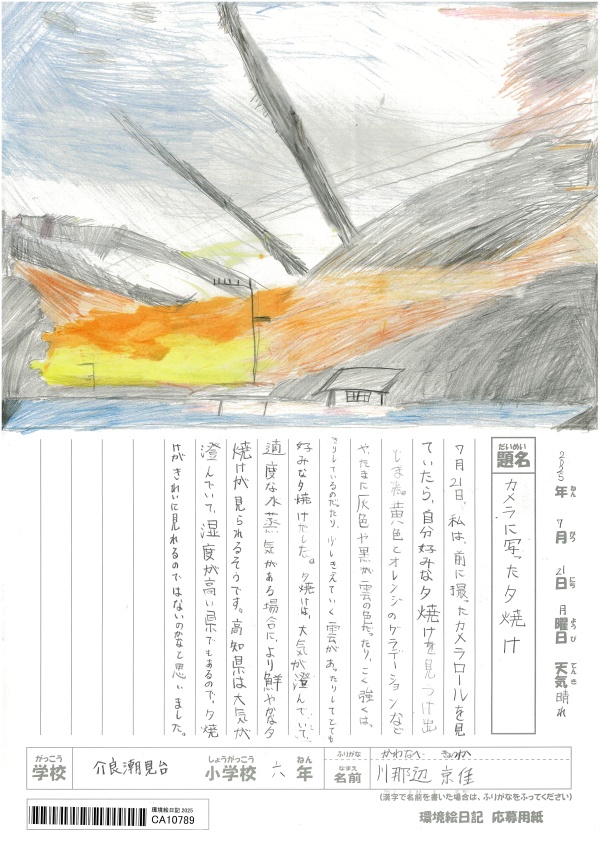 2025年 7月 21日 月曜日 天気 晴れ
ねん がつ にち ようび てんき
だいめい
題名 カメラに写った夕焼け
7月21日、私は、前に撮ったカメラロールを見
ていたら、自分好みな夕焼けを見つけ出
しました。黄色とオレンジのグラデーションなど
や、たまに灰色や黒が雲の色だったり、こく強くは、
っきりしているのだったり、少しきえていく雲があったりしてとても
好みな夕焼けでした。夕焼けは、大気が澄んでいて、
適度な水蒸気がある場合に、より鮮やかな夕
焼けが見られるそうです。高知県は大気が
澄んでいて、湿度が高い県でもあるので、夕焼
けがきれいに見れるのではないのかなと思いました。
がっこう しょうがっこう ねん ふりがな かわなべ
学校 介良潮見台 小学校 六 年 なまえ 名前 川那辺 京佳
(漢字で名前を書いた場合は、ふりがなをふってください)
環境絵日記 応募用紙
環境絵日記 2025
CA10789